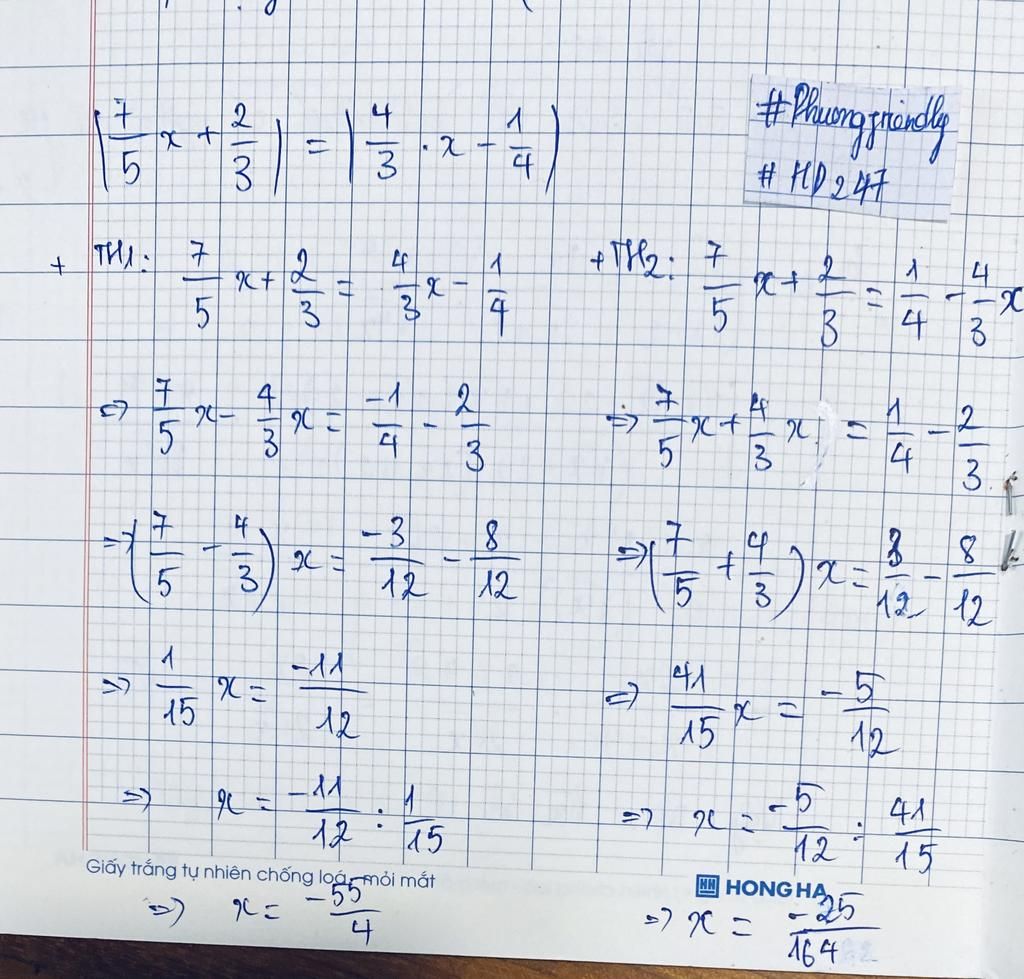 |7/5 x + 2/3| = |4/3 . x - 1/4|
#Phuongfriendly
# HD 247
+ TH1: 7/5 x + 2/3 = 4/3 x - 1/4
=> 7/5 x - 4/3 x = -1/4 - 2/3
=> (7/5 - 4/3) x = -3/12 - 8/12
=> 1/15 x = -11/12
=> x = -11/12 : 1/15
=> x = -55/4
+ TH2: 7/5 x + 2/3 = 1/4 - 4/3 x
=> 7/5 x + 4/3 x = 1/4 - 2/3
=> (7/5 + 4/3) x = 3/12 - 8/12
=> 41/15 x = -5/12
=> x = -5/12 : 41/15
=> x = -25/164
Giấy trắng tự nhiên chống loá, mỏi mắt
HH HONG HA